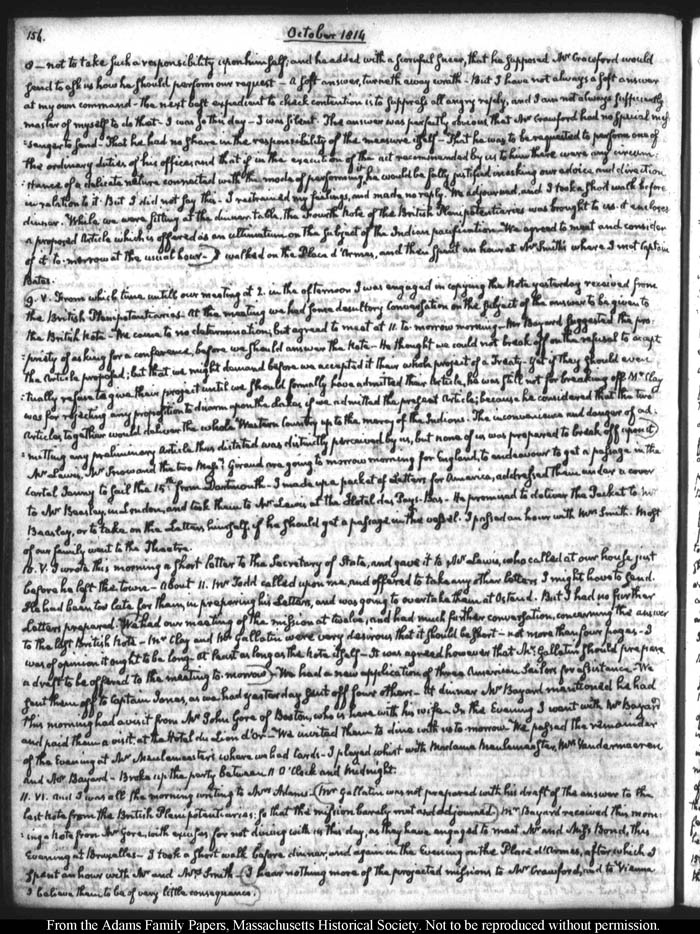 156.
October 1814
not to take such a responsibility upon himself; and he added with a scornful sneer, that he supposed Mr Crawford would
send to ask us how he should perform our request — A soft answer, turneth away wrath — But I have not always a soft answer
at my own command — The next best expedient to check contention is to suppress all angry reply, and I am not always sufficiently
master of myself to do that — I was so this day — I was silent. The answer was perfectly obvious that Mr Crawford had no special mes
:senger to send — That he had no share in the responsibility of the measure itself — That he was to be requested to perform one of
the ordinary duties of his office; and that if in the execution of the act recommended by us to him there were any circum:
:stance of a delicate nature connected with the mode of performing it, he would be fully justified in asking our advice and direction
in relation to it. But I did not say this — I restrained my feelings, and made no reply. We adjourned, and I took a short walk before
dinner. While we were sitting at the dinner table, the fourth Note of the British Plenipotentiaries was brought to us. it encloses
a proposed Article which is offered as an ultimatum on the subject of the Indian pacification. We agreed to meet and consider
of it to-morrow at the usual hour — I walked on the Place d'Armes, and then spent an hour at Mr Smith's where I met Captain
Bates.
9. V. From which time until our meeting at 2. in the afternoon I was engaged in copying the Note yesterday received from
the British Plenipotentiaries. At the meeting we had some desultory conversation on the subject of the answer to be given to
the British Note — We came to no determination; but agreed to meet at 11. to morrow morning — Mr Bayard suggested the pro:
:priety of asking for a conference, before we should answer the Note — He thought we could not break off on the refusal to accept
the Article proposed; but that we might demand before we accepted it their whole project of a Treaty — yet if they should even
tually refuse to give their project until we should formally have admitted their Article, he was still not for breaking off. Mr Clay
was for rejecting any proposition to disarm upon the Lakes if we admitted the present Article; because he considered that the two
Articles together would deliver the whole Western Country up to the mercy of the Indians. The inconvenience and danger of ad:
:mitting any preliminary Article thus dictated was distinctly perceived by us, but none of us was prepared to break off upon it
Mr Lewis, Mr Snow and the two Giraud are going to morrow morning for England, to endeavour to get a passage in the
Cartel Jenny to sail the 15th from Dartmouth — I made up a packet of Letters for America, addressed them under a cover
to Mr Beasley, in London, and took them to Mr Lewis at the Hotel des Pays-Bas — He promised to deliver the Packet to Mr
Beasley, or to take on the Letters himself, if he should get a passage in the vessel. I passed an hour with Mrs Smith. Most
of our family went to the Theatre.
10. V. I wrote this morning a short letter to the Secretary of State, and gave it to Mr Lewis, who called at our house just
before he left the town — About 11. Mr Todd called upon me, and offered to take any other letters I might have to send.
He had been too late for them, in preparing his Letters, and was going to overtake them at Ostend. But I had no further
Letters prepared. We had our meeting of the mission at twelve; and had much further conversation, concerning the answer
to the last British Note — Mr Clay and Mr Gallatin were very desirous that it should be short — not more than four pages — I
was of opinion it ought to be long — at least as long as the Note itself — It was agreed however that Mr Gallatin should prepare
a draft to be offered to the meeting to-morrow — We had a new application of three American Sailors for assistance. We
sent them off to Captain Jones, as we had yesterday sent off four others — At dinner Mr Bayard mentioned he had
this morning had a visit from Mr John Gore of Boston, who is here with his wife. In the Evening I went with Mr Bayard
and paid them a visit, at the Hotel du Lion d'or — We invited them to dine with us to morrow. We passed the remainder
of the Evening at Mr Meulemeester's where we had Cards — I played whist with Madame Meulemeester, Mrs Vandermaeren
and Mr Bayard — Broke up the party between 11 O'Clock and Midnight.
11. VI. and I was all the morning writing to Mrs Adams. Mr Gallatin was not prepared with his draft of the answer to the
last Note from the British Plenipotentiaries: so that the mission barely met and adjourned. Mr Bayard received this morn:
:ing a Note from Mr Gore, with excuses for not dining with us this day, as they have engaged to meet Mr and Miss Bond, this
Evening at Bruxelles — I took a short walk before dinner, and again in the Evening on the Place d'Armes, after which I
spent an hour with Mr and Mrs Smith — I hear nothing more of the projected missions to Mr Crawford, and to Vienna
I believe them to be of very little consequence.
From the Adams Family Papers, Massachusetts Historical Society. Not to be reproduced without permission.